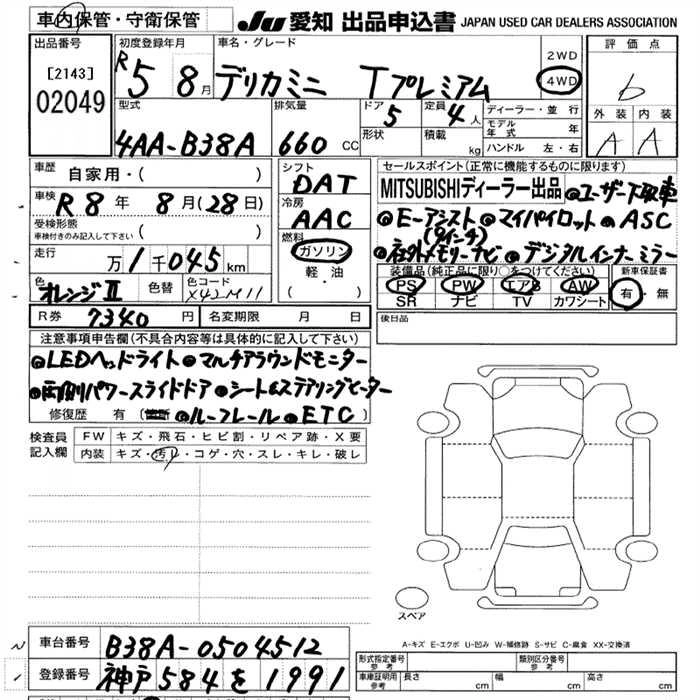 車内保管・守衛保管
JU 愛知 出品申込書 JAPAN USED CAR DEALERS ASSOCIATION
出品番号
[2143]
02049
初度登録年月
R5 8月
車名・グレード
デリカミニ Tプレミアム
2WD
4WD
評価点
6
外装 内装
A A
型式
4AA-B38A
排気量
660 CC
ドア
5
形状
定員
4人
積載 kg
ディーラー・並行
モデル年式 年
ハンドル 左・右
車歴
自家用・( )
車検
R8年 8月(28日)
受検形態
車検付きのみ記入して下さい ( )
走行
万1千045km
色
オレンジII
色替
色コード
X42M11
シフト
DAT
冷房
AAC
燃料
ガソリン
軽・油
・( )
セールスポイント(正常に機能するものに限ります)
MITSUBISHIディーラー出品 ●ユーザー下取車
●E-アシスト ●マイパイロット ●ASC
(9インチ)
●社外メモリーナビ ●デジタルインナーミラー
装備品(純正品に限り○をつけてください)
PS PW エアB AW
SR ナビ TV カワシート
新車保証書
有・無
R券 7340円
名変期限 月 日
後日品
注意事項申告欄(不具合内容等は具体的に記入して下さい)
●LEDヘッドライト ●マルチアラウンドモニター
●両側パワースライドドア ●シート&ステアリングヒーター
修復歴 有 ●ルーフレール ●ETC
検査員記入欄
FW キズ・飛石・ヒビ割・リペア跡・X要
内装 キズ・汚レ・コゲ・穴・スレ・キレ・破レ
スペア
A-キズ E-エクボ U-凹み W-補修跡 S-サビ C-腐食 XX-交換済
車台番号 B38A-0504512
登録番号 神戸 584 を 1991
形式指定番号 参考
類別区分番号 参考
車庫証明用 参考
長さ cm
幅 cm
高さ cm